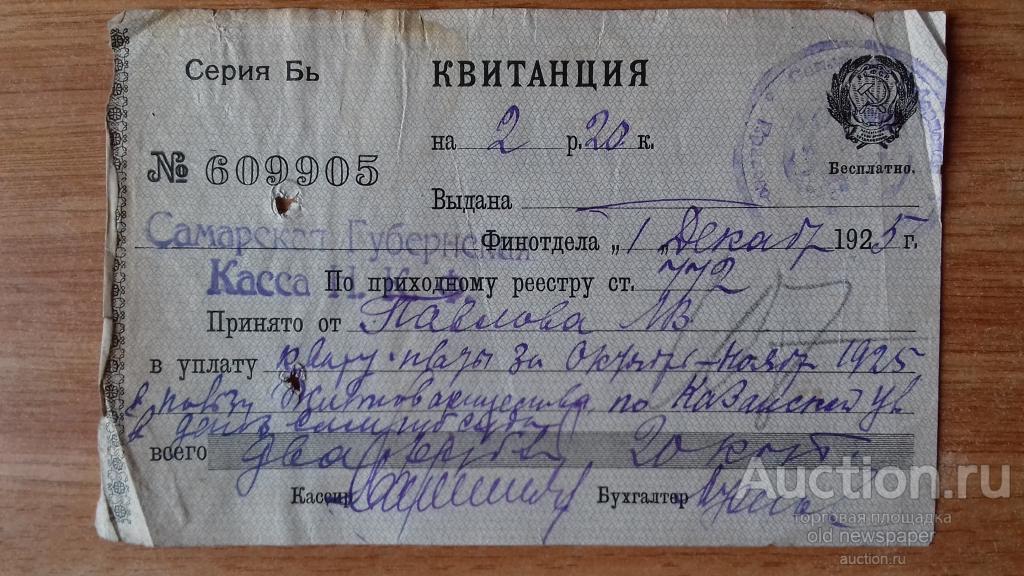 Серия Бь КВИТАНЦИЯ
на 2 р. 20 к.
№ 609905
Бесплатно.
Выдана
Самарская Губернская Финотдела „1" Декаб 1925 г.
Касса Н. К. Ф. По приходному реестру ст. 772
Принято от Павлова МВ
в уплату кварт. платы за Октябрь-ноябрь 1925
Жилтоварищества по Казанской ул
в
всего два рубля 20 коп.
Кассир Бухгалтер
Auction.ru
торговая площадка
old newspaper
auction.ru